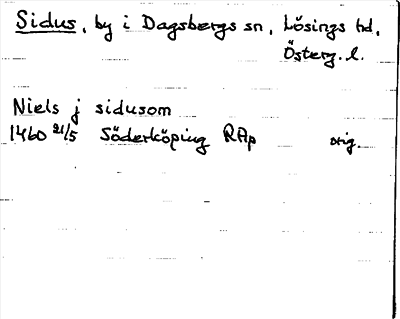 Sidus, by i Dagsbergs sn, Lösings hd,
Österg.l.
Niels j sidusom
1460 21/5 Söderköping RAp orig.